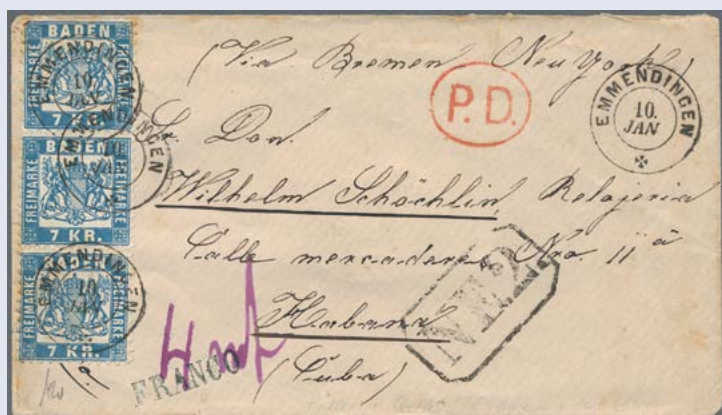 BADEN
FREIMARKE
FREIMARKE
7 KR.
EMMENDINGEN
10.
JAN
BADEN
FREIMARKE
FREIMARKE
7 KR.
EMMENDINGEN
10.
JAN
FREIMARKE
FREIMARKE
7 KR.
EMMENDINGEN
10.
JAN
(Via Bremen New York)
P.D.
EMMENDINGEN
10.
JAN
Sr. Don.
Wilhelm Schöchlin, Relojeria
Calle mercaderes Nro. 11 à
Habana
(Cuba)
FRANCO